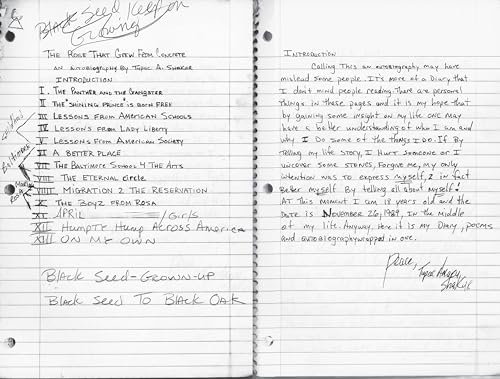 Black Seed Keep on
Growing
The Rose That Grew From Concrete
an autobiography By Tupac A. Shakur
INTRODUCTION
I. The Panther and the Gangster
II The "Shining Prince" is Born Free
III Lessons From American Schools
IV Lessons From Lady Liberty
V Lessons From American Society
VI A BETTER PLACE
VII The Baltimore School 4 The Arts
VIII The Eternal circle
IX MIGRATION 2 THE RESERVATION
X The Boyz From Rosa
XI APRIL Girls
XII Humpty Hump Across America
XIII ON MY OWN
Baltimore
Marin
Rosa
Black Seed-Grown-up
Black Seed To Black Oak
Introduction
Calling This an autobiography may have
mislead some people. It's more of a Diary that
I don't mind people reading. There are personal
Things in these pages and it is my hope that
by gaining some insight on my life one may
have a better understanding of who I am and
why I Do some of the Things I Do. If By
Telling my life story, I Hurt Someone or I
uncover some stones, Forgive me, my only
intention was to express myself, 2 in fact
Better myself By telling all about myself!
At This moment I am 18 years old and the
DATE is November 26, 1989, in the middle
of my life. Anyway, Here it is My Diary, poems
and autobiography wrapped in one.
Peace,
Tupac Amaru
Shakur